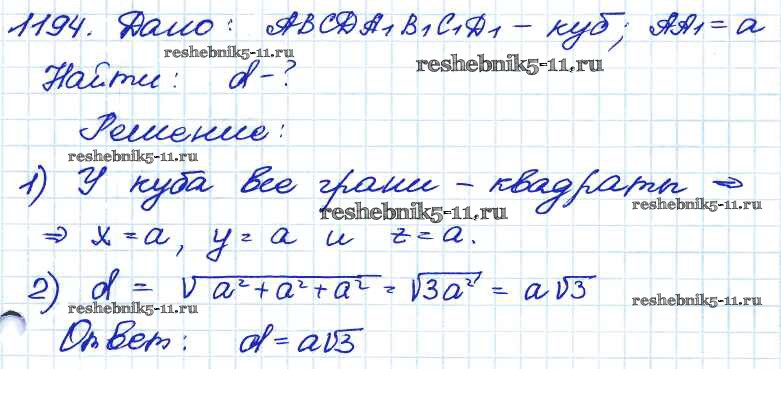 1194. Дано: ABCDA₁B₁C₁D₁ – куб; AA₁ = a
reshebnik5-11.ru
reshebnik5-11.ru
Найти: d – ?
Решение:
reshebnik5-11.ru
1) У куба все грани – квадраты ⇒
reshebnik5-11.ru
reshebnik5-11.ru
⇒ x = a, y = a и z = a.
2) d = √(a² + a² + a²) = √(3a²) = a√3
reshebnik5-11.ru
reshebnik5-11.ru
Ответ: d = a√3